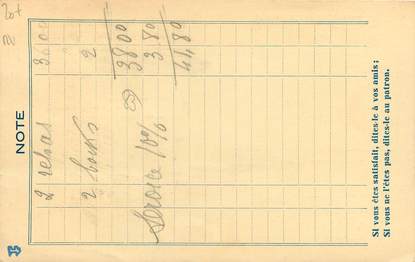 NOTE
2 repas 36 00
2 bocks 2
38 00
Service 10% 3.80
41,80
Si vous êtes satisfait, dites-le à vos amis ;
Si vous ne l'êtes pas, dites-le au patron.